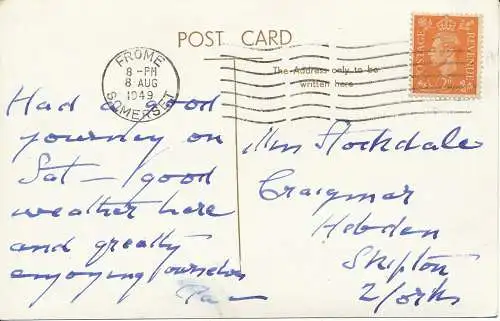 POST CARD
FROME
8 - PM
8 AUG
1949
SOMERSET
POSTAGE
REVENUE
The Address only to be
written here
Had a good
journey on
Sat – good
weather here
and greatly
enjoying ourselves
Stockdale
Craigmar
Hebden
Skipton
Yorks